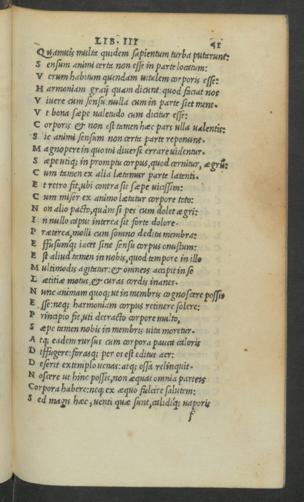 LIB. III 41
Quamuis multa quidem sapientum turba putarunt:
Sensum animi certa non esse in parte locatum:
Verum habitum quendam uitalem corporis esse:
Harmoniam graij quam dicunt: quod faciat nos
Viuere cum sensu: nulla cum in parte siet mens.
Vt bona sæpe ualetudo cum dicitur esse:
Corporis & non est tamen hæc pars ulla ualentis:
Sic animi sensum non certa parte reponunt.
Magnopere in quo mi diuersi errare uidentur.
Sæpe utiq; in promptu corpus, quod cernitur, ægrũ:
Cum tamen ex alia lætamur parte latenti.
Et retro fit, ubi contra sit sæpe uicissim:
Cum miser ex animo lætatur corpore toto:
Non alio pacto, quàm si pes cum dolet ægri:
In nullo caput interea sit forte dolore.
Præterea, molli cum somno dedita membra:
Effusumq; iacet sine sensu corpus onustum:
Est aliud tamen in nobis, quod tempore in illo
Multimodis agitatur: & omneis accipit in se
Lætitiæ motus, & curas cordis inaneis.
Nunc animam quoq; ut in membris cognoscere possis
Esse: neq; harmoniam corpus retinere solere:
Principio fit, uti detracto corpore multo,
Sæpe tamen nobis in membris uita moretur.
Atq; eadem rursus cum corpora pauca caloris
Diffugere: forasq; per os est editus aer:
Deserit extemplo uenas: atq; ossa relinquit.
Noscere ut hinc possis, non æquas omnia parteis
Corpora habere: neq; ex æquo fulcire salutem:
Sed magis hæc, uenti quæ sunt, calidiq; uaporis
f